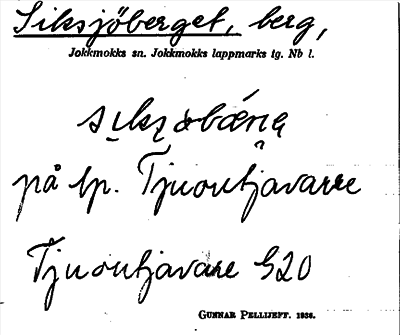 Siksjöberget, berg,
Jokkmokks sn. Jokkmokks lappmarks tg. Nb l.
på lp. Tjuoutjavarre
Tjuoutjavare G20
GUNNAR PELLIJEFF. 1938.